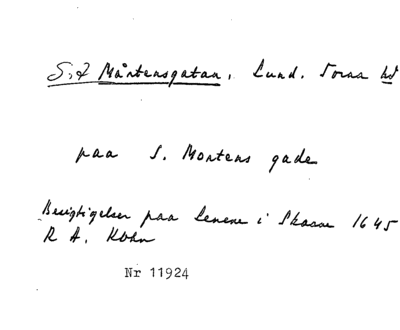 S:t Mårtensgatan, Lund. Torna hd
paa S. Mortens gade
Besigtigelser paa Lenene i Skaane 1645
R A. Kbhn
Nr 11924